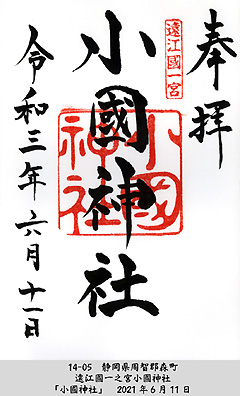 奉拝
遠江國一宮
小國神社
小國神社
令和三年六月十一日
14-05 静岡県周智郡森町
遠江國一之宮小國神社
「小國神社」 2021年6月11日